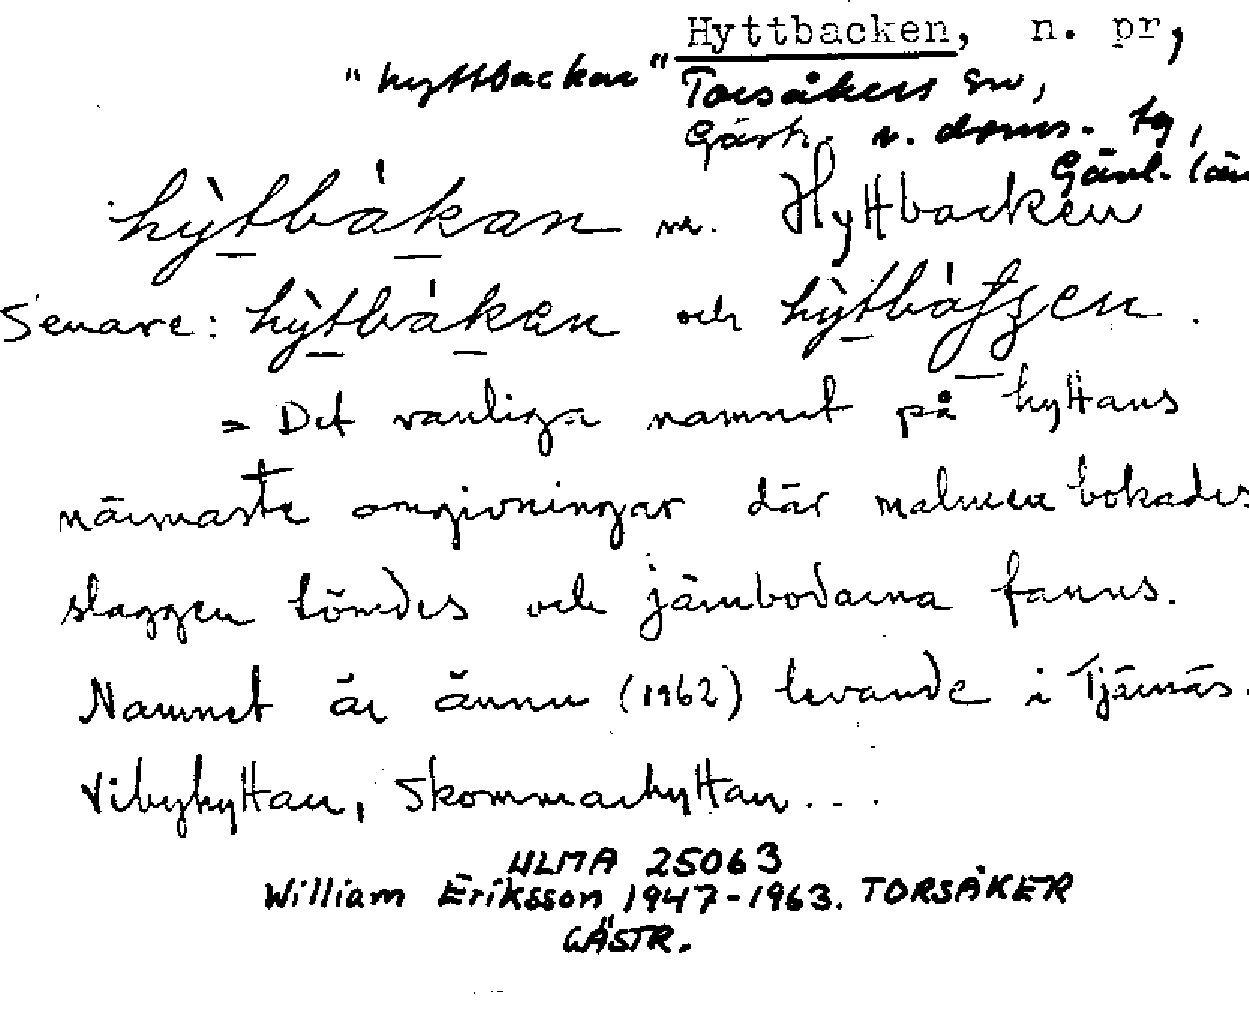 Hyttbacken, n. pr,
"hyttbacken" Torsåkers sn,
Gästr. v. doms. tg,
Gävl. län
hy̆̀tbákan m. Hyttbacken
Senare: hy̆̀tbáken och hy̆̀tbátʃen.
= Det vanliga namnet på hyttans
närmaste omgivningar där malmen bokades
slaggen tömdes och järnbodarna fanns.
Namnet är ännu (1962) levande i Tjärnäs.
Vibyhyttan, Skommarhyttan...
ULMA 25063
William Eriksson 1947-1963. TORSÅKER
GÄSTR.